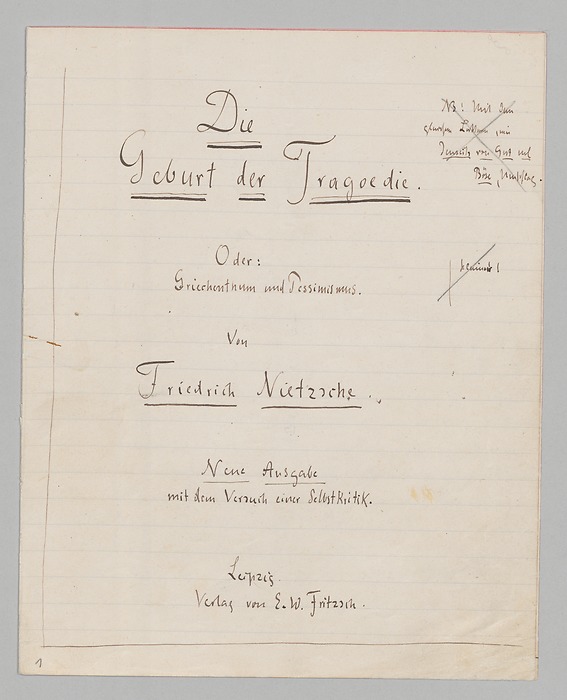 Die
Geburt der Tragoedie.
NB! Mit den
Jenseits von Gut und
Böse
Oder:
Griechenthum und Pessimismus.
Von
Friedrich Nietzsche.
Neue Ausgabe
mit dem Versuch einer Selbstkritik.
Leipzig.
Verlag von E. W. Fritzsch.
1